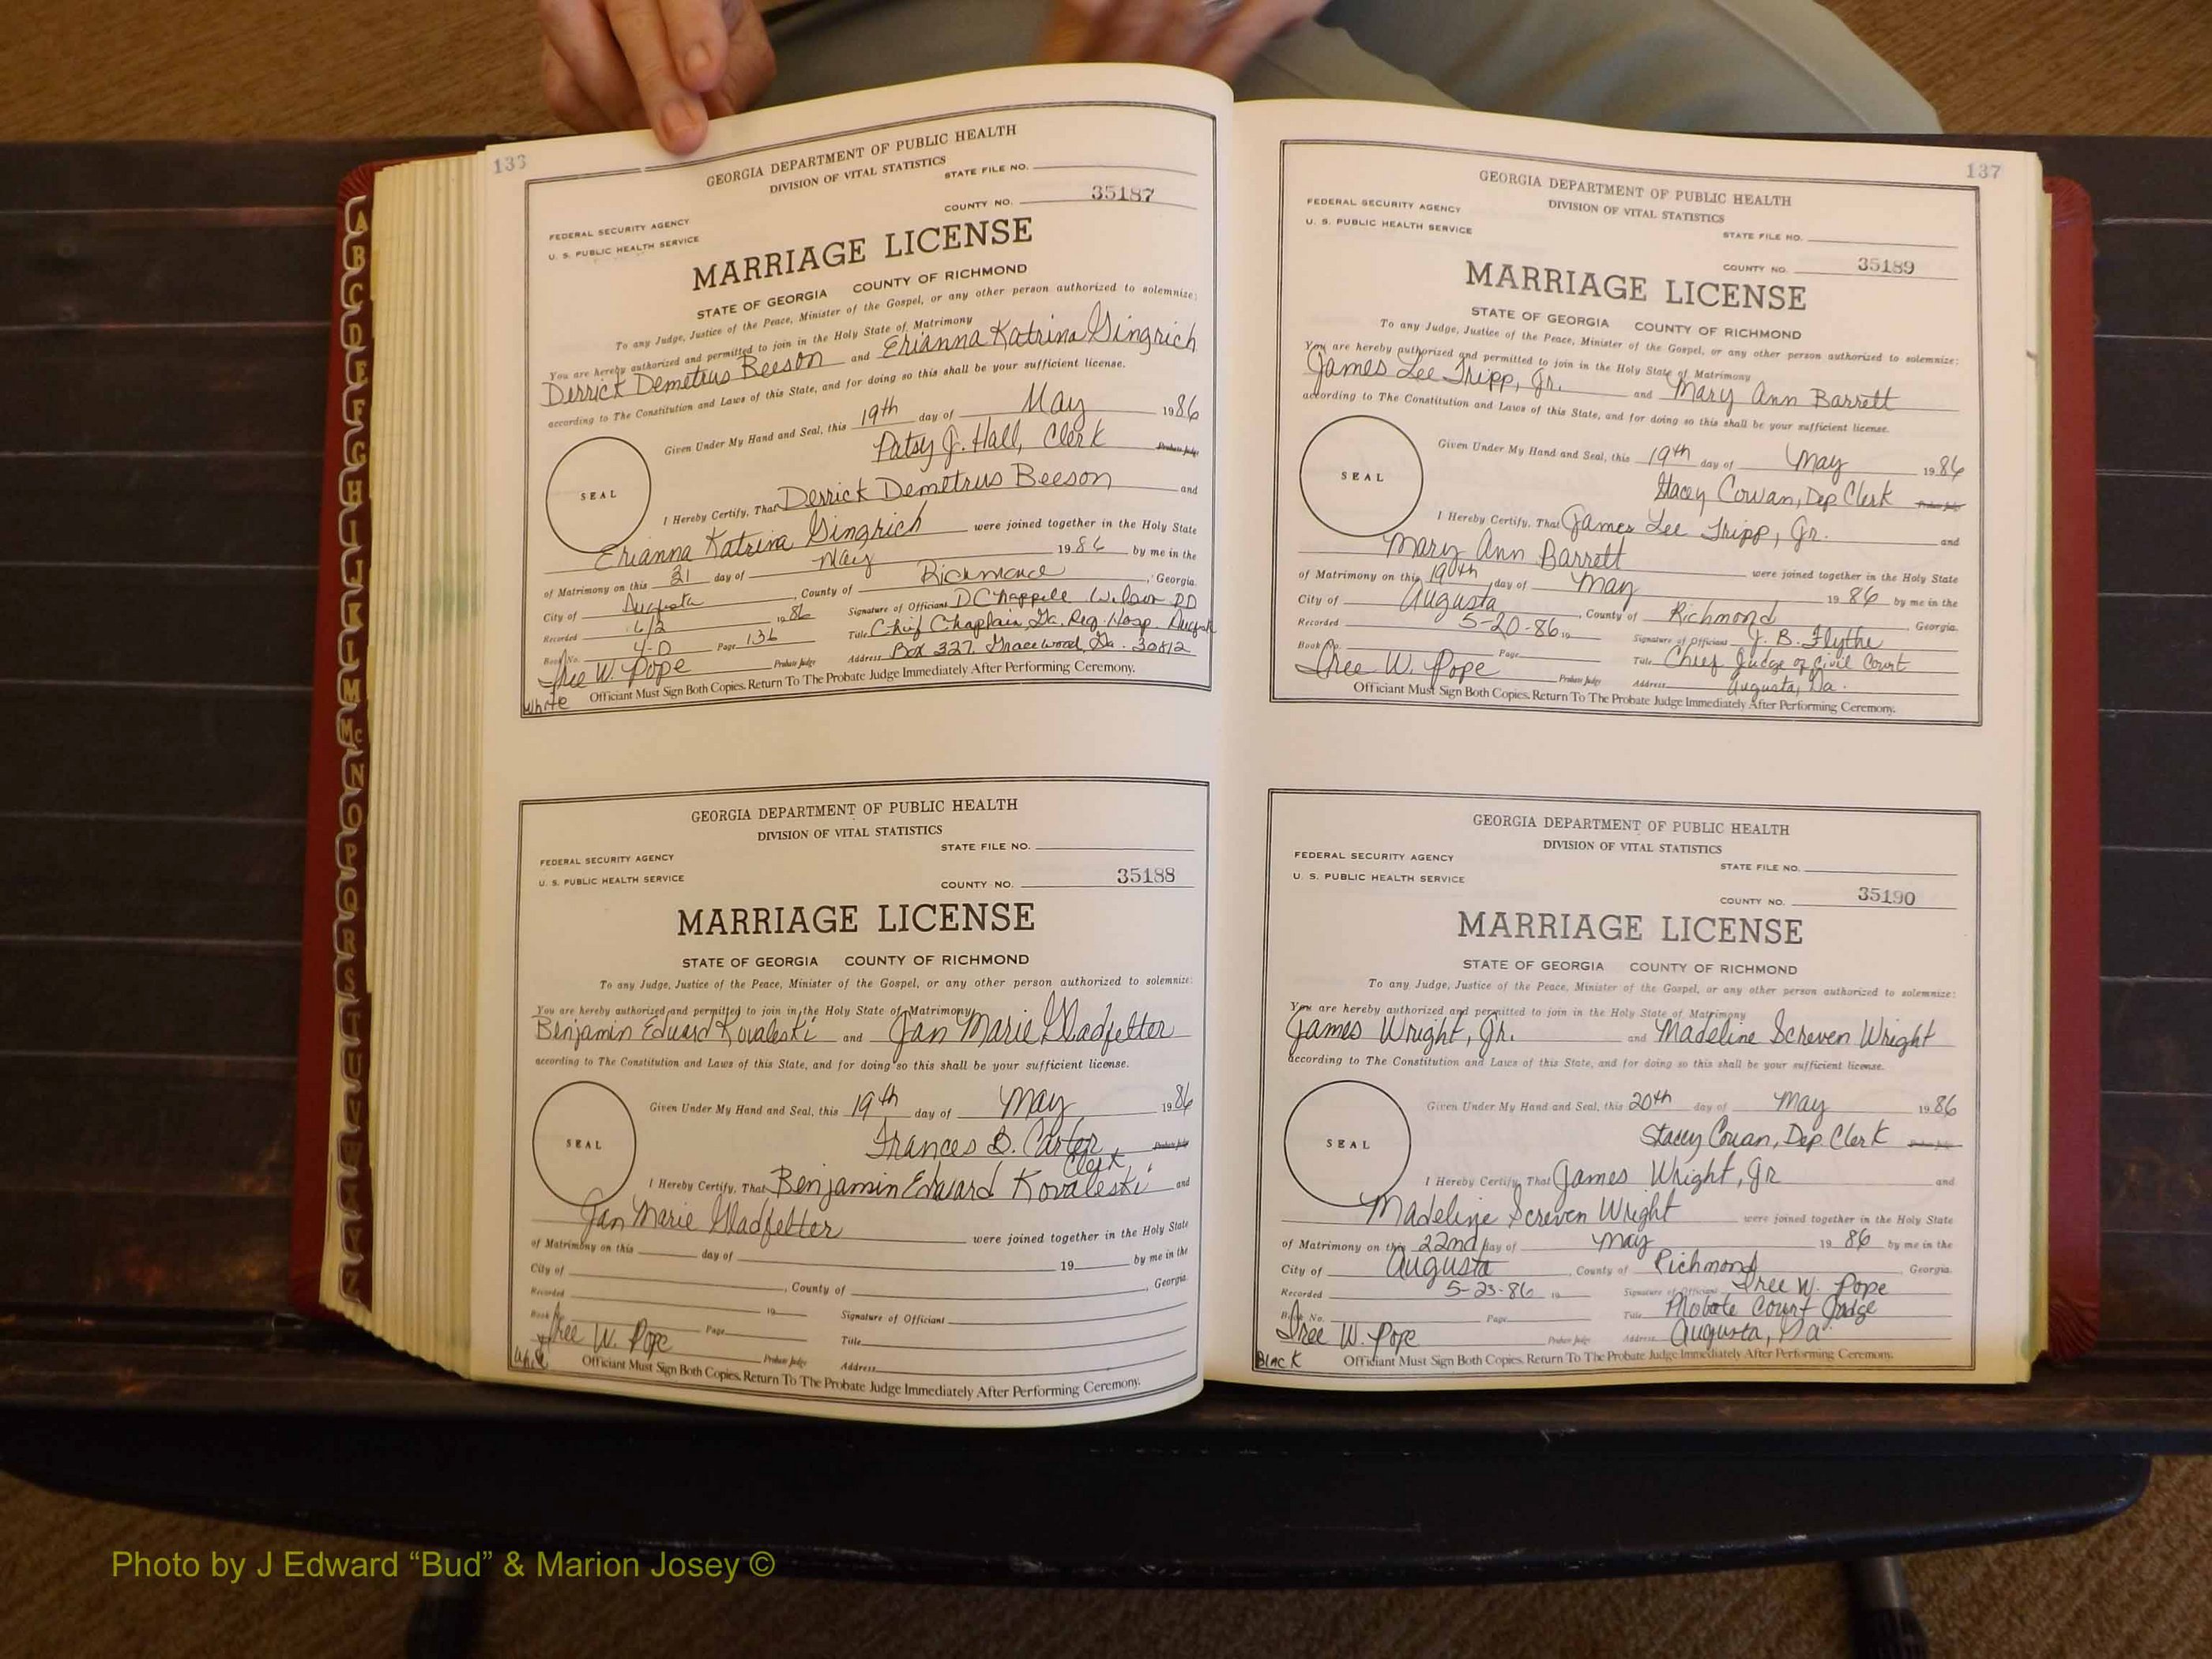 133
GEORGIA DEPARTMENT OF PUBLIC HEALTH
DIVISION OF VITAL STATISTICS
STATE FILE NO.
FEDERAL SECURITY AGENCY
U. S. PUBLIC HEALTH SERVICE
COUNTY NO. 35187
MARRIAGE LICENSE
STATE OF GEORGIA COUNTY OF RICHMOND
To any Judge, Justice of the Peace, Minister of the Gospel, or any other person authorized to solemnize:
You are hereby authorized and permitted to join in the Holy State of Matrimony
Derrick Demetrus Beeson and Erianna Katrina Gingrich
according to The Constitution and Laws of this State, and for doing so this shall be your sufficient license.
Given Under My Hand and Seal, this 19th day of May 1986
Patsy J. Hall, Clerk Probate Judge
SEAL
I Hereby Certify, That Derrick Demetrus Beeson and
Erianna Katrina Gingrich were joined together in the Holy State
of Matrimony on this 31 day of May 1986 by me in the
City of Augusta, County of Richmond, Georgia
Recorded 6/2 1986 Signature of Officiant D Chappell Wilson DD
Book No. 4-D Page 136 Title Chief Chaplain, Ga. Reg. Hosp. August
Tree W. Pope Probate Judge Address Box 327, Gracewood, Ga. 30812
White Officiant Must Sign Both Copies. Return To The Probate Judge Immediately After Performing Ceremony.
GEORGIA DEPARTMENT OF PUBLIC HEALTH
DIVISION OF VITAL STATISTICS
STATE FILE NO.
FEDERAL SECURITY AGENCY
U. S. PUBLIC HEALTH SERVICE
COUNTY NO. 35188
MARRIAGE LICENSE
STATE OF GEORGIA COUNTY OF RICHMOND
To any Judge, Justice of the Peace, Minister of the Gospel, or any other person authorized to solemnize:
You are hereby authorized and permitted to join in the Holy State of Matrimony
Benjamin Edward Kovaleski and Jan Marie Gladfelter
according to The Constitution and Laws of this State, and for doing so this shall be your sufficient license.
Given Under My Hand and Seal, this 19th day of May 1986
Frances B. Carter Probate Judge
Clerk
SEAL
I Hereby Certify, That Benjamin Edward Kovaleski and
Jan Marie Gladfelter were joined together in the Holy State
of Matrimony on this day of 19 by me in the
City of , County of , Georgia
Recorded 19 Signature of Officiant
Book No. Page Title
Tree W. Pope Probate Judge Address
White Officiant Must Sign Both Copies. Return To The Probate Judge Immediately After Performing Ceremony.
137
GEORGIA DEPARTMENT OF PUBLIC HEALTH
DIVISION OF VITAL STATISTICS
FEDERAL SECURITY AGENCY
U. S. PUBLIC HEALTH SERVICE
STATE FILE NO.
COUNTY NO. 35189
MARRIAGE LICENSE
STATE OF GEORGIA COUNTY OF RICHMOND
To any Judge, Justice of the Peace, Minister of the Gospel, or any other person authorized to solemnize:
You are hereby authorized and permitted to join in the Holy State of Matrimony
James Lee Tripp, Jr. and Mary Ann Barrett
according to The Constitution and Laws of this State, and for doing so this shall be your sufficient license.
Given Under My Hand and Seal, this 19th day of May 1986
Stacey Cowan, Dep. Clerk Probate Judge
SEAL
I Hereby Certify, That James Lee Tripp, Jr. and
Mary Ann Barrett were joined together in the Holy State
of Matrimony on this 19th day of May 1986 by me in the
City of Augusta, County of Richmond, Georgia.
Recorded 5-20-86 19 Signature of Officiant J. B. Flythe
Book No. Page Title Chief Judge of Civil Court
Tree W. Pope Probate Judge Address Augusta, Ga.
Officiant Must Sign Both Copies. Return To The Probate Judge Immediately After Performing Ceremony.
GEORGIA DEPARTMENT OF PUBLIC HEALTH
DIVISION OF VITAL STATISTICS
FEDERAL SECURITY AGENCY
U. S. PUBLIC HEALTH SERVICE
STATE FILE NO.
COUNTY NO. 35190
MARRIAGE LICENSE
STATE OF GEORGIA COUNTY OF RICHMOND
To any Judge, Justice of the Peace, Minister of the Gospel, or any other person authorized to solemnize:
You are hereby authorized and permitted to join in the Holy State of Matrimony
James Wright, Jr. and Madeline Screven Wright
according to The Constitution and Laws of this State, and for doing so this shall be your sufficient license.
Given Under My Hand and Seal, this 20th day of May 1986
Stacey Cowan, Dep. Clerk Probate Judge
SEAL
I Hereby Certify, That James Wright, Jr and
Madeline Screven Wright were joined together in the Holy State
of Matrimony on this 22nd day of May 1986 by me in the
City of Augusta, County of Richmond Georgia.
Recorded 5-23-86 19 Signature of Officiant Tree W. Pope
Book No. Page Title Probate Court Judge
Tree W. Pope Probate Judge Address Augusta, Ga.
Black Officiant Must Sign Both Copies. Return To The Probate Judge Immediately After Performing Ceremony.
A
B
C
D
E
F
G
H
I
J
K
L
M
Mc
N
O
P
Q
R
S
T
U
V
W
X
Y
Z
Photo by J Edward “Bud” & Marion Josey ©